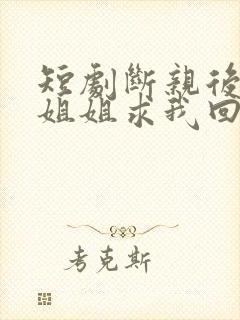 短劇斷親後
姐姐求我回
考克斯